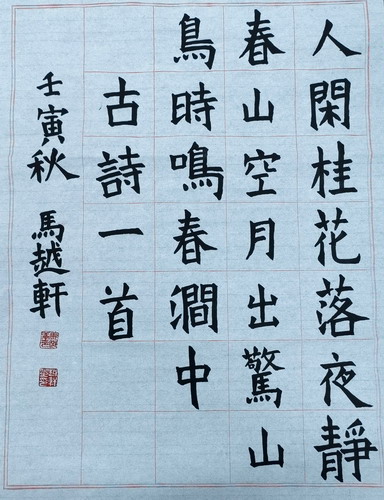 人閑桂花落夜靜
春山空月出驚山
鳥時鳴春澗中
古詩一首
壬寅秋 馬越軒